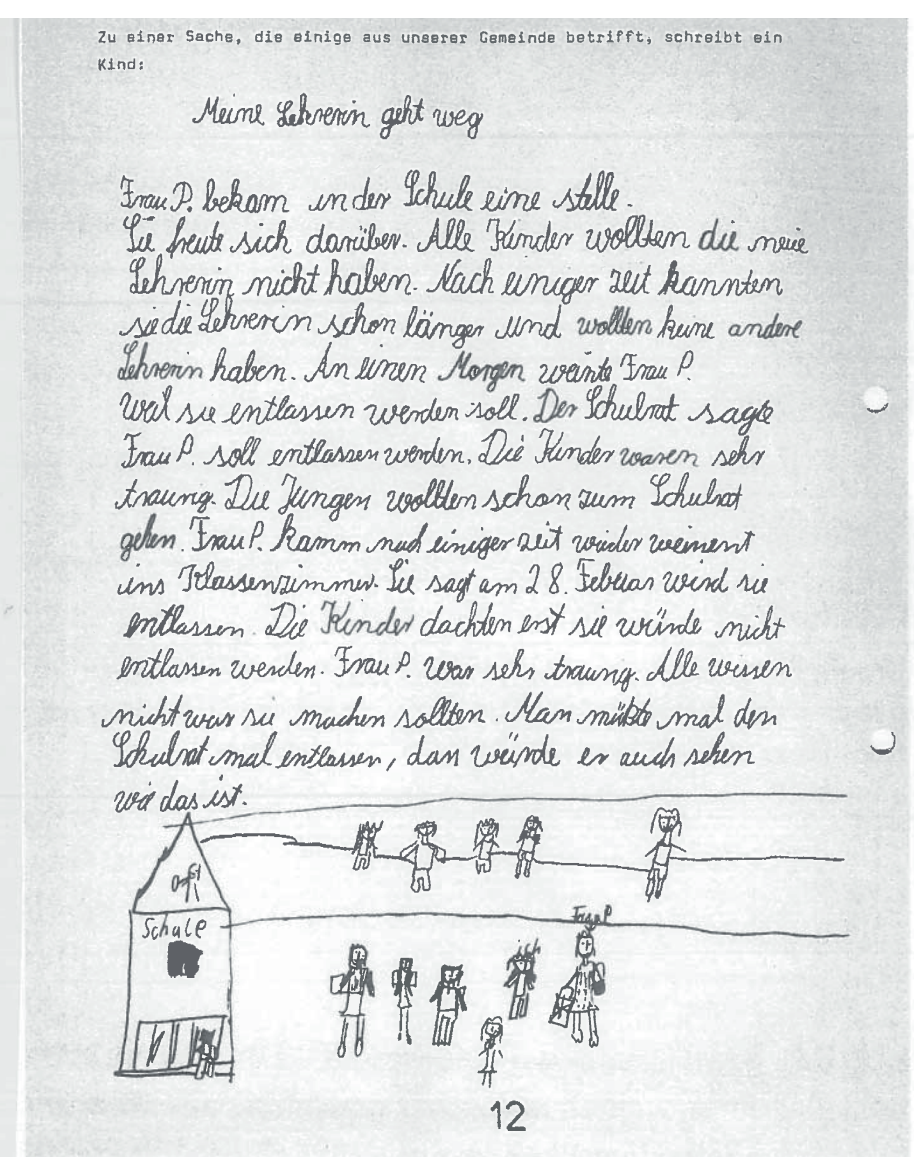 Zu einer Sache, die einige aus unserer Gemeinde betrifft, schreibt ein
Kind:
Meine Lehrerin geht weg
Frau P. bekam in der Schule eine stelle.
Sie freute sich darüber. Alle Kinder wollten die neue
Lehrerin nicht haben. Nach einiger zeit kannten
sie die Lehrerin schon länger und wollten keine andere
Lehrerin haben. An einen Morgen weinte Frau P.
weil sie entlassen werden soll. Der Schulrat sagte
Frau P. soll entlassen werden. Die Kinder waren sehr
traurig. Die Jungen wollten schon zum Schulrat
gehen. Frau P. kamm nach einiger zeit wieder weinent
ins Klassenzimmer. Sie sagt am 28. Febuar wird sie
entlassen. Die Kinder dachten erst sie würde nicht
entlassen werden. Frau P. war sehr traurig. Alle wissen
nicht was sie machen sollten. Man müßte mal den
Schulrat mal entlassen, dan würde er auch sehen
wie das ist.
Schule
ich
Frau P
12